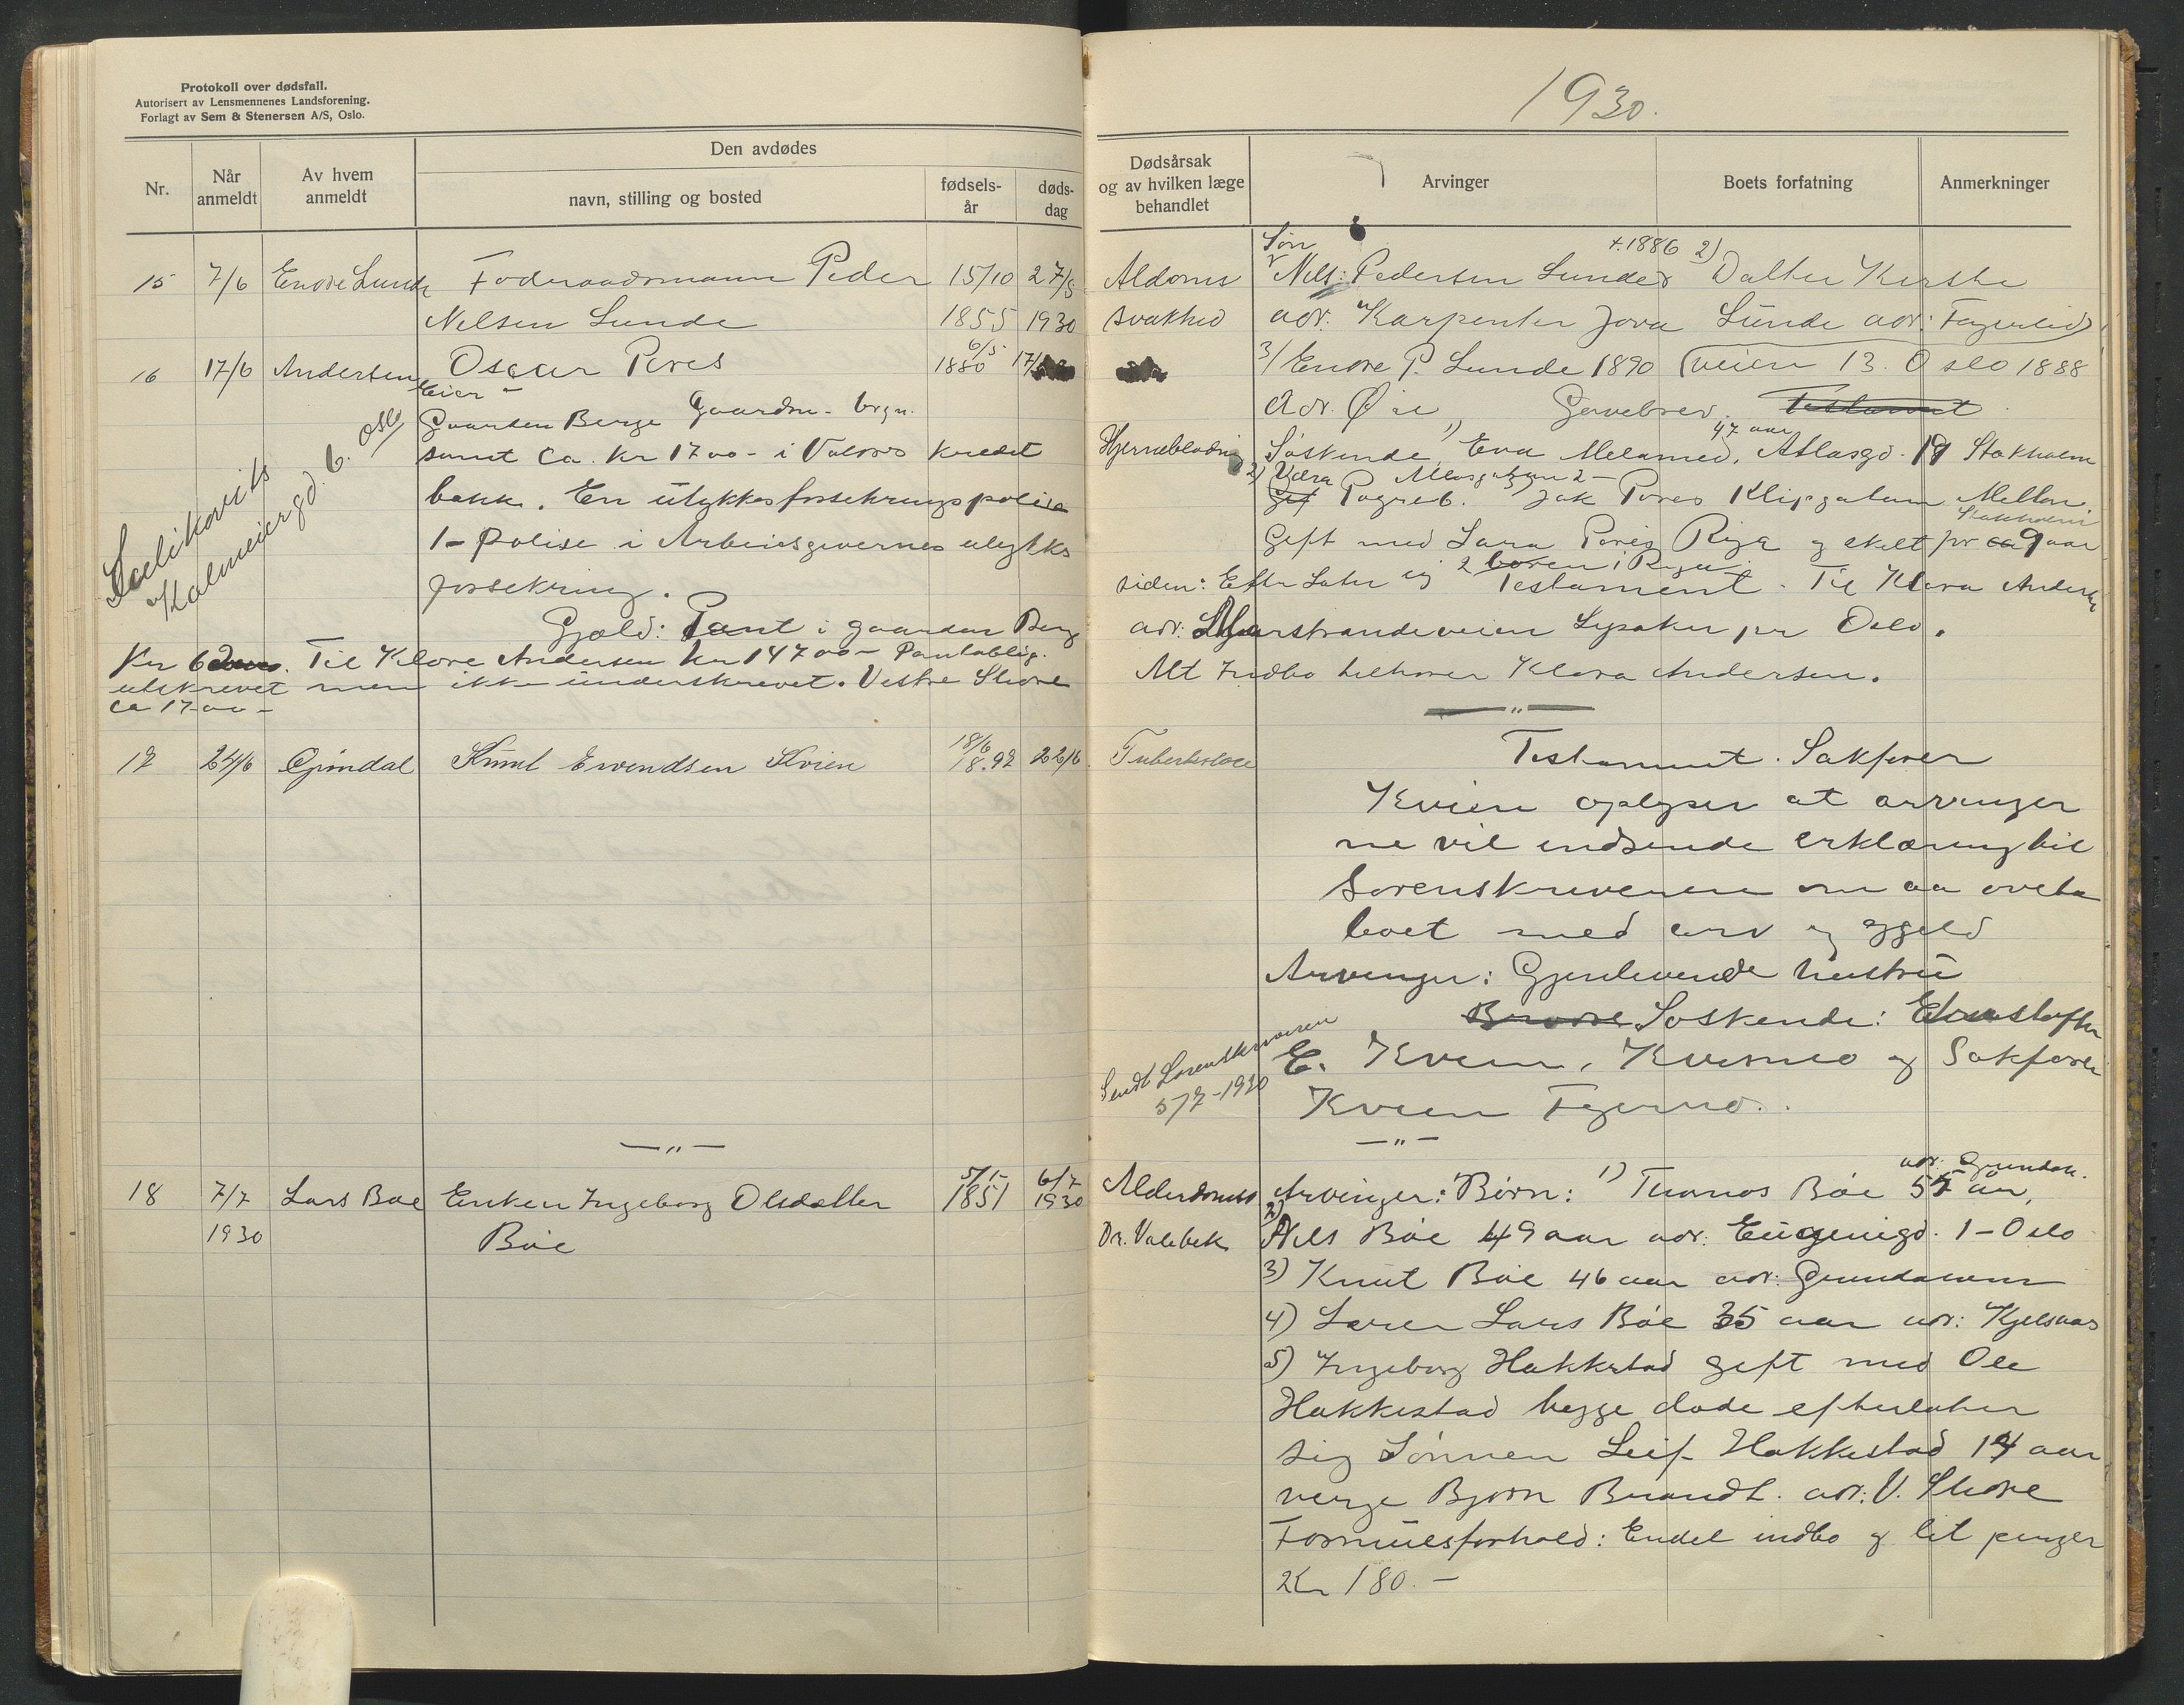 Protokoll over dødsfall.
Autorisert av Lensmennenes Landsforening.
Forlagt av Sem & Stenersen A/S, Oslo.
Nr.
Når anmeldt
Av hvem anmeldt
Den avdødes
navn, stilling og bosted
fødsels-år
døds-dag
15 7/6 Endre Lunde Foderaadsmann Peder 15/10 27/5
Nelsen Lunde 1855 1930
16 17/6 Andersen Oscar Peres 6/5 1880 17/
Eier
Gaarden Berge Gaardsn. brgn.
samt ca. Kr 1700 - i Valdres Kredit
bank. En ulykkesforsekringspolise
1 - Polise i Arbeidsgivernes ulykks
forsekring.
Selikovits
Kalmeiergd. 6. Oslo
Gjæld: Pant i gaarden Berg
Kr 6 Til Klara Andersen Kr 14700 - Pantoblig.
utskrevet men ikke underskrevet. Vestre Slidre
ca 1700 -
17 24/6 Grindal Knut Eivendsen Kvien 18/6 18.92 22/6
— " —
18 7/7 Lars Bøe Enken Ingeborg Olsdatter 5/1 - 1851 6/7 1930
1930 Bøe
1930.
Dødsårsak og av hvilken læge behandlet
Arvinger
Boets forfatning
Anmerkninger
Aldoms
svakhed
Søn
Nels Pedersen Lunde + 1886 2) Datter Kirsti
adr: Karpenter Jova Lunde adr: Fagerlid
3/ Endre P. Lunde 1890 veien 13. Oslo 1888
Adr. Øie Gavebrev. Testament
Hjerneblødning
1) 47 aar
Søskende, Eva Melamed, Atlasgd. 19 Stokholm
2) Vera Atlasgatan 2 -
Pogreb. Jak Peres Klipgatan Mellan.
Stokholm
Gift med Sara Peres Riga og skilt for 9 aar
siden: Efter Later sig 2 born i Riga. Testament. Til Klara Andersen
adr: strandsveien Lysaker pr Oslo.
Alt Indbo tilhører Klara Andersen.
— " —
Tuberkolose
Testament. Sakfører
Kvien oplyser at arvinger
ne vil indsende erklæring til
Sorenskriveren om aa overta
boet med arv og gjeld
Arvinger: Gjenlevende hustru
Søskende:
E. Kvien, Kvismo og Sakfører
Kvien Fagernes.
Sendt Sorenskriveren
5/7 - 1930
— " —
Alderdoms
Dr. Valebek
adr. Grundak.
Arvinger: Børn: 1) Thomas Bøe 55 aar,
2) Nils Bøe 49 aar adr. Eugenigd. 1 - Oslo
3) Knut Bøe 46 aar adr:
4) Lærer Lars Bøe 35 aar adr: Kjelsaas
5) Ingeborg Hakkestad gift med Ole
Hakkestad begge døde efterlater
sig Sønnen Leif Hakkestad 14 aar
verge Bjørn Brandt. adr: V. Slidre
Formuesforhold: Endel indbo og lit penger
Kr 180. —